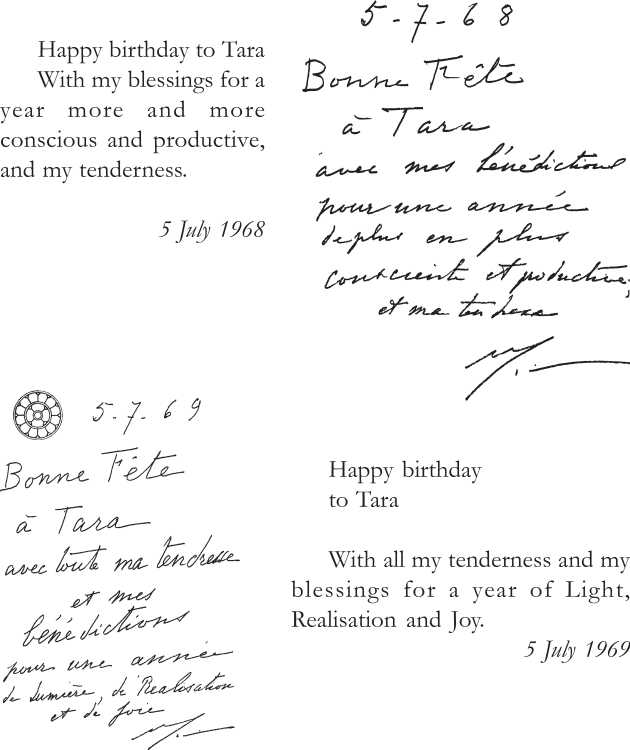 Happy birthday to Tara
With my blessings for a
year more and more
conscious and productive,
and my tenderness.
5 July 1968
5-7-68
Bonne Fête
à Tara
avec mes bénédictions
pour une année
de plus en plus
consciente et productive,
et ma tendresse
5-7-69
Bonne Fête
à Tara
avec toute ma tendresse
et mes
bénédictions
pour une année
de Lumière, de Realisation
et de Joie
Happy birthday
to Tara
With all my tenderness and my
blessings for a year of Light,
Realisation and Joy.
5 July 1969